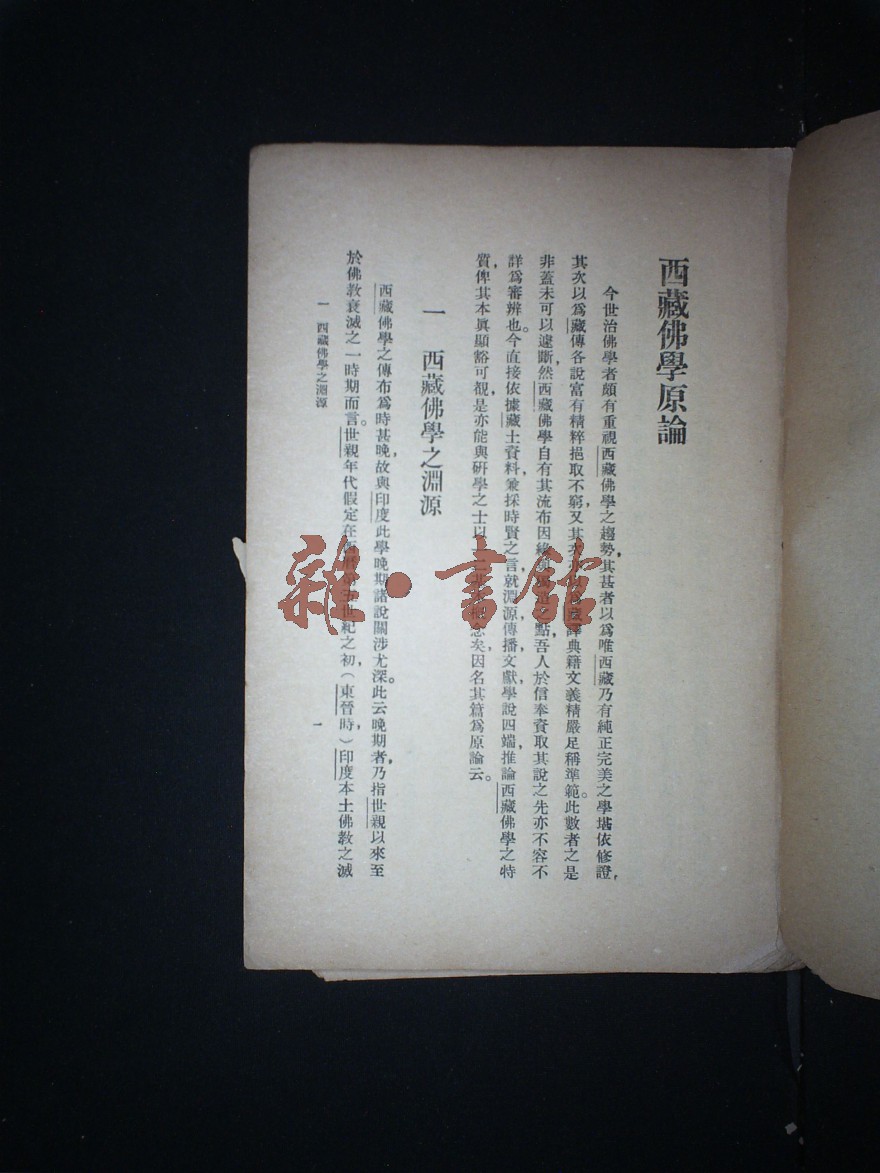 西藏佛學原論
今世治佛學者頗有重視西藏佛學之趨勢,其甚者以爲唯西藏乃有純正完美之學堪依修證,
其次以爲藏傳各說富有精粹挹取不窮,又其次
譯典籍文義精嚴足稱準範。此數者之是
非蓋未可以遽斷,然西藏佛學自有其流布因緣
之點,吾人於信奉資取其說之先亦不容不
詳爲審辨也。今直接依據藏土資料,兼採時賢之言,就淵源,傳播,文獻,學說四端,推論西藏佛學之特
質,俾其本眞顯豁可覩,是亦能與研學之士以
念矣,因名其篇爲原論云。
一 西藏佛學之淵源
西藏佛學之傳布爲時甚晚,故與印度此學晚期諸說關涉尤深。此云晚期者,乃指世親以來至
於佛教衰滅之一時期而言。世親年代假定在
世紀之初,(東晉時,)印度本土佛教之滅
一 西藏佛學之淵源
一
雜·書館